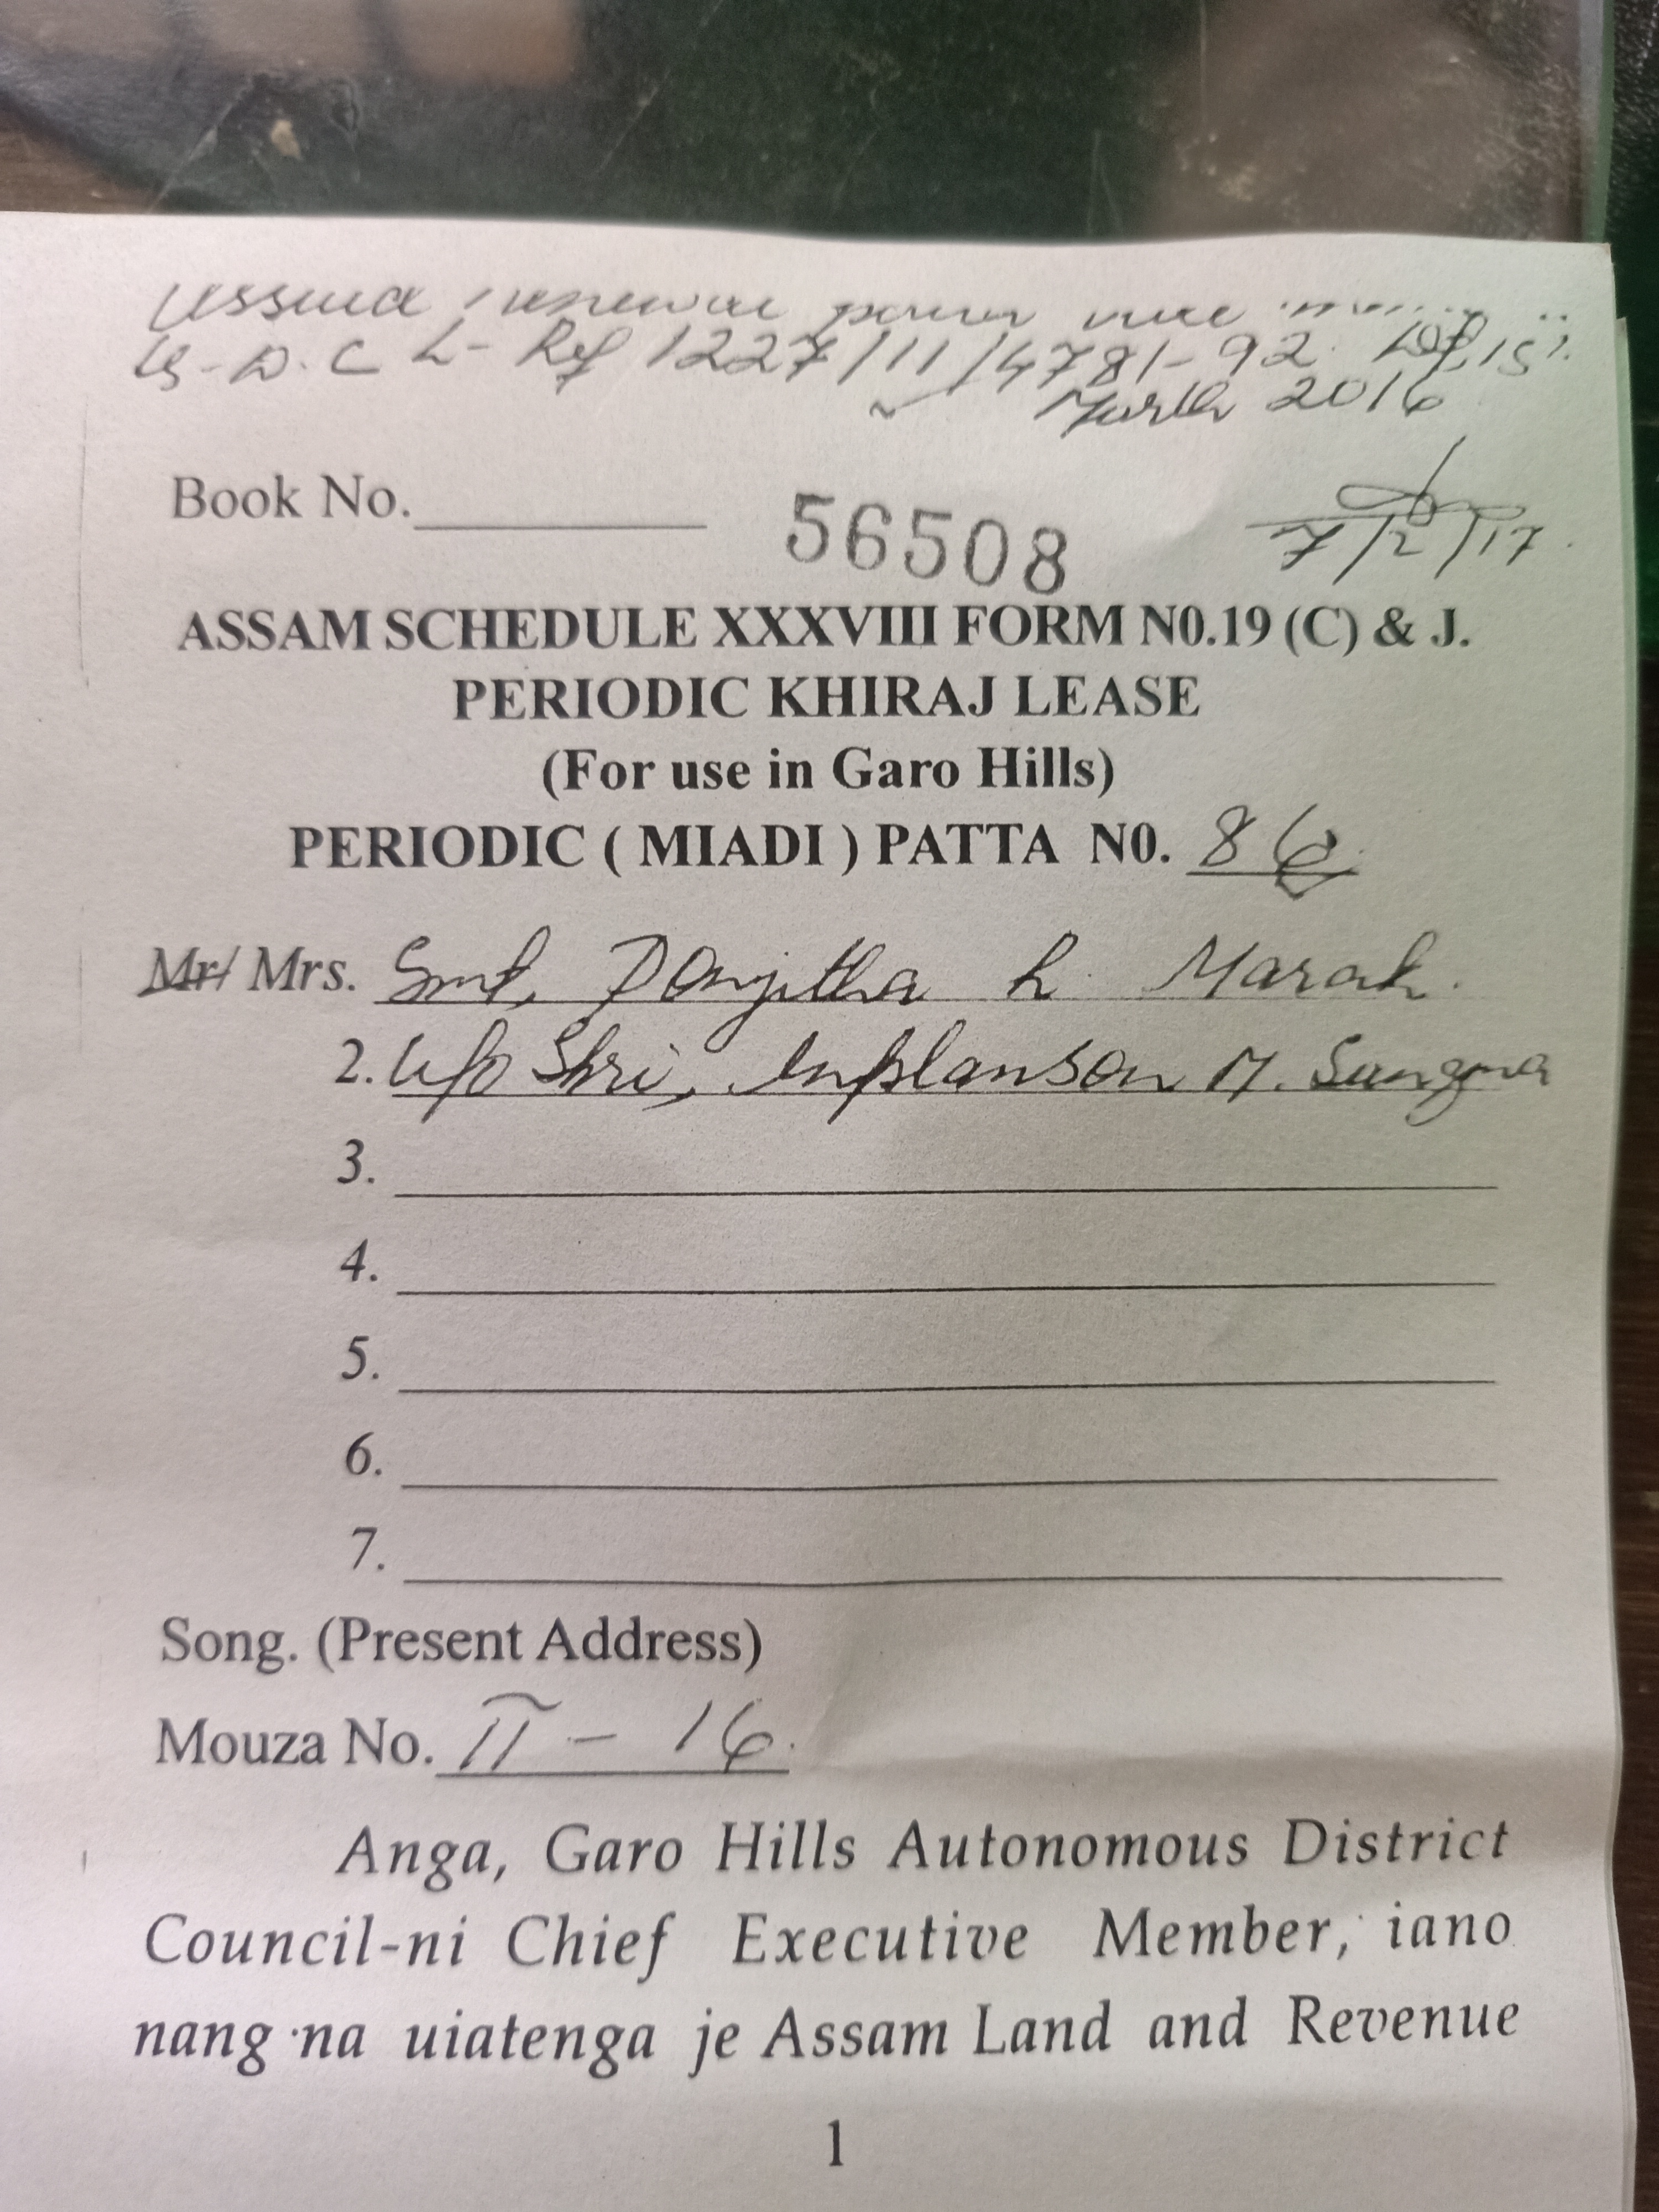 Issued renewal
G.D.C L- Ref 1227/11/4781-92
March 2016
Book No. 56508
7/2/17
ASSAM SCHEDULE XXXVIII FORM N0.19 (C) & J.
PERIODIC KHIRAJ LEASE
(For use in Garo Hills)
PERIODIC ( MIADI ) PATTA N0. 86
Mr/ Mrs. Smt, Marak.
2. W/o Shri, M. Sangma
3.
4.
5.
6.
7.
Song. (Present Address)
Mouza No. II - 16.
Anga, Garo Hills Autonomous District
Council-ni Chief Executive Member, iano
nang·na uiatenga je Assam Land and Revenue
1